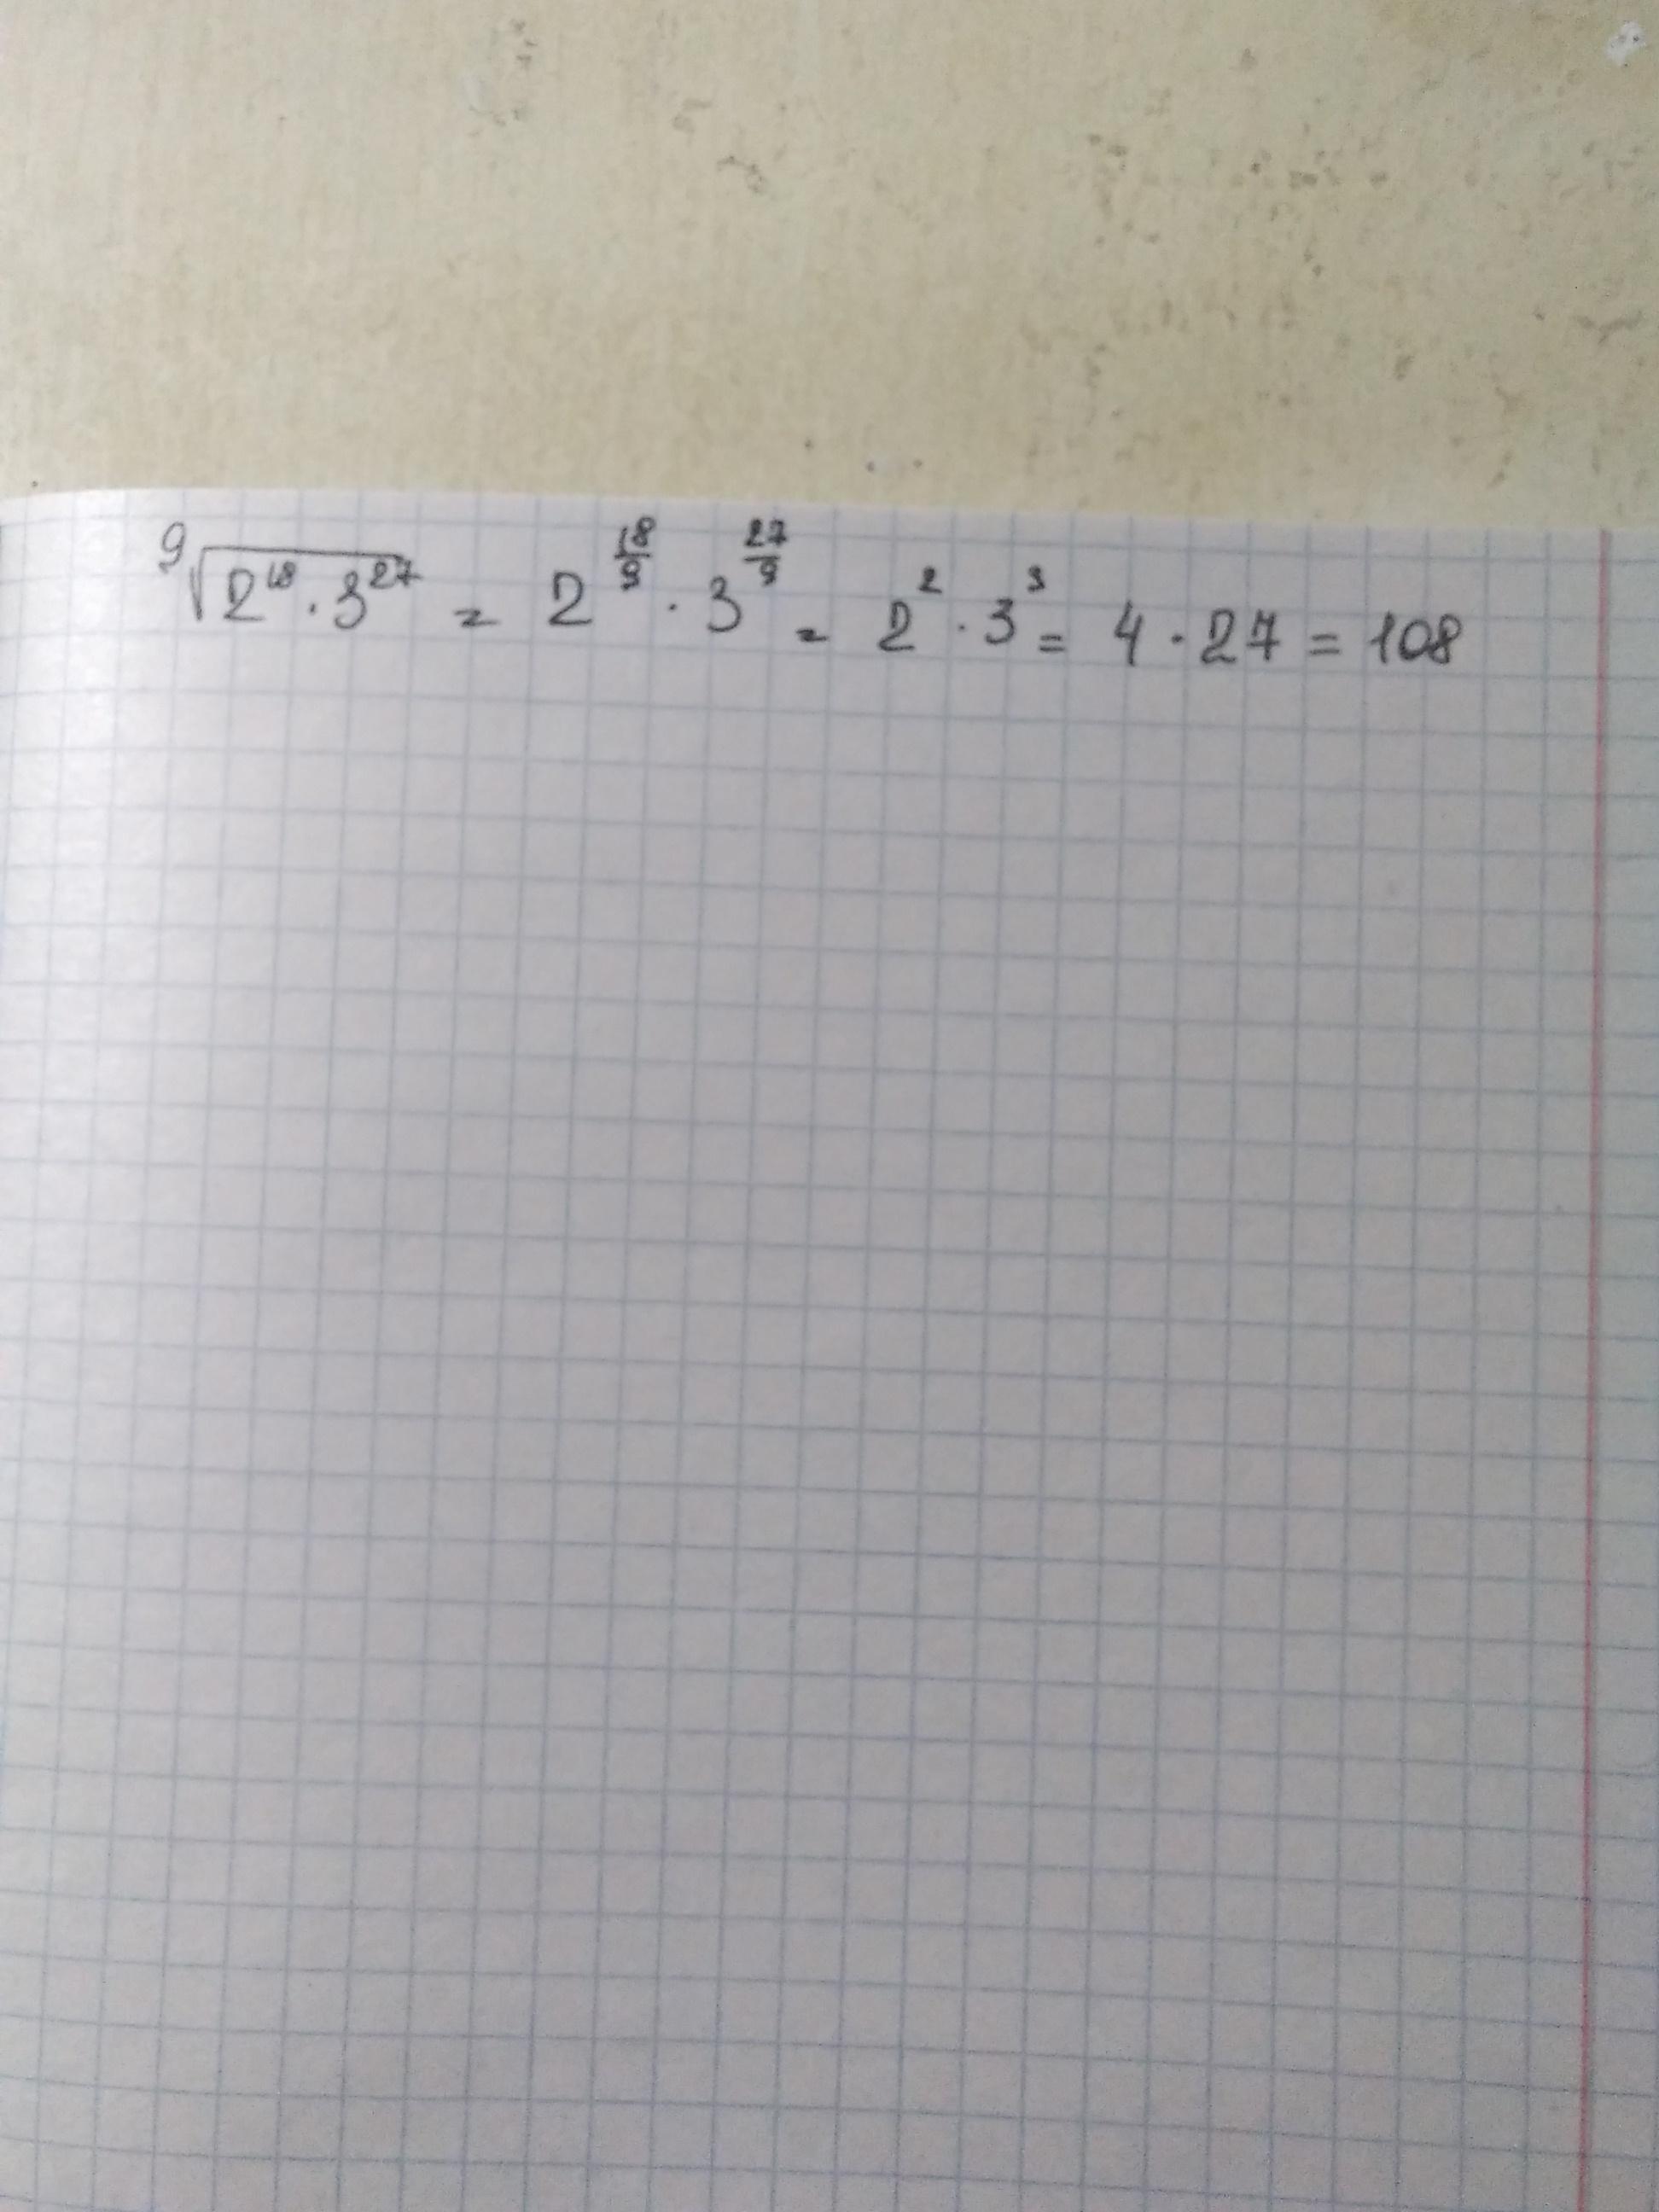 ⁹√(2¹⁸ · 3²⁷) = 2^(18/9) · 3^(27/9) = 2² · 3³ = 4 · 27 = 108